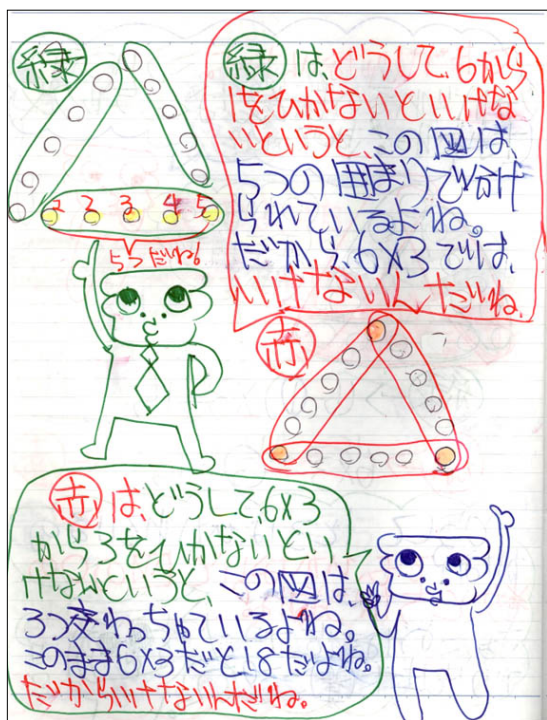 緑
緑は、どうして、6から
1をひかないといけな
いというと、この図は、
5つの囲まりで分け
られているよね。
だから、6×3では、
いけないんだね。
1 2 3 4 5
5つだね!
赤
赤は、どうして、6×3
から3をひかないとい
けないというと、この図は、
3つ変わっちゃているよね。
このまま6×3だと、18だよね。
だからいけないんだね。